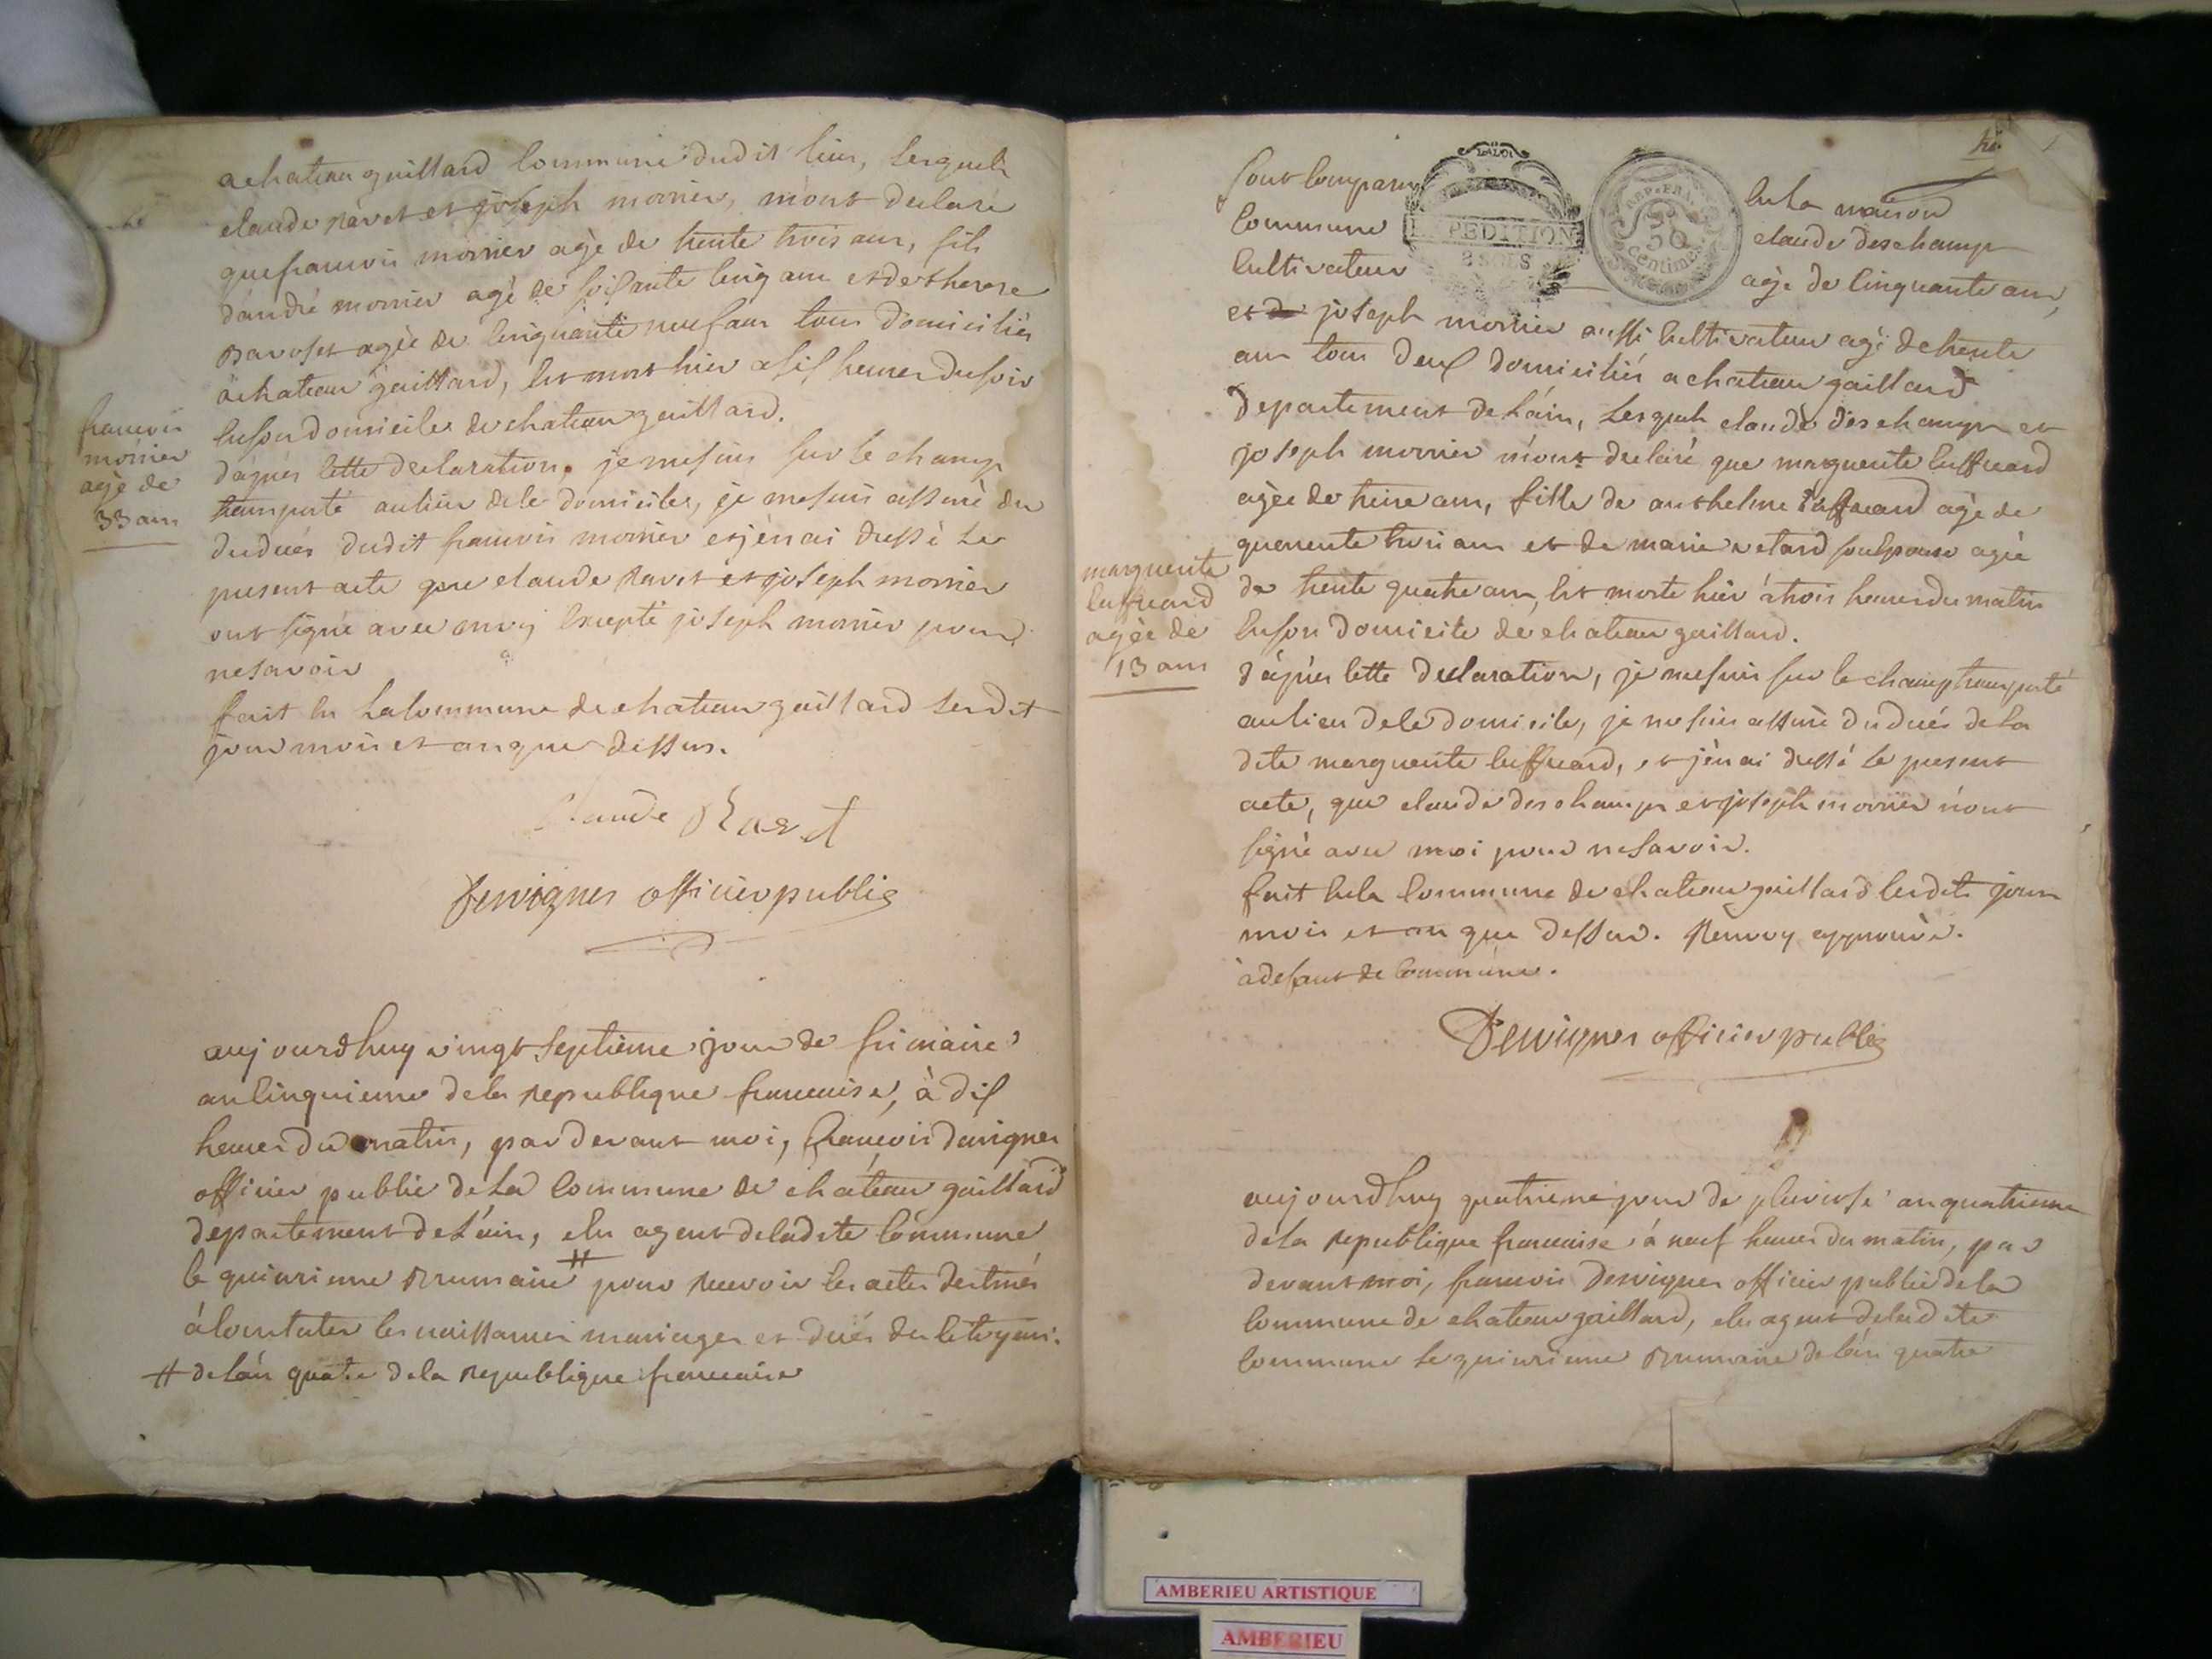 achateau gaillard Commune dudit lieu, lesquels
claude navet et joseph morrier, m'ont declaré
que francois morrier agé de trente trois ans, fils
d'andré morrier agé de soixante cinq ans et de therese
agée de cinquante neuf ans tous domiciliés
à chateau gaillard, est mort hier a six heures du soir
en son domicile de chateau gaillard.
d'après cette declaration, je me suis sur le champ
transporté au lieu de le domicile, je me suis assuré du
du decès dudit francois morrier et j'en ai dressé le
present acte que claude navet et joseph morrier
ont signé avec moy Excepté joseph morrier pour
ne savoir
fait en la Commune de chateau gaillard lesdit
jour mois et an que dessus.
francois
morrier
agé de
33 ans
Claude
officier public
aujourdhuy vingt septieme jour de frimaire
an cinquieme de la republique francaise, à dix
heures du matin, par devant moi, francois
officier public de la Commune de chateau gaillard
departement de l'ain, elu agent de ladite Commune
le quinzieme Brumaire # pour recevoir les actes destinés
à Constater les naissances mariages et decés des Citoyens.
# de l'an quatre de la republique francaise
sont comparus
en la maison
Commune
claude deschamp
Cultivateur
agé de Cinquante ans,
LA LOI
EXPEDITION
8 SOLS
REP. FRA.
50
Centimes
et de joseph morrier aussi Cultivateur agé de trente
ans tous deux domiciliés a chateau gaillard
Departement de l'ain, lesquels claude deschamps et
joseph morrier m'ont declaré que marguerite Cuffeard
agée de treize ans, fille de anthelme Cuffeard agé de
quarente trois ans et de marie son epouse agée
de trente quatre ans, est morte hier à trois heures du matin
en son domicile de chateau gaillard.
d'après cette declaration, je me suis sur le champ transporté
au lieu de le domicile, je me suis assuré du decés de la
dite marguerite Cuffeard, et j'en ai dressé le present
acte, que claude deschamps et joseph morrier n'ont
signé avec moi pour ne savoir.
fait en la Commune de chateau gaillard lesdits jour
mois et an que dessus. Renvoy approuvé.
à defaut de Commune.
marguerite
Cuffeard
agée de
13 ans
Desvignes officier public
aujourdhuy quatrieme jour de pluviose an quatrieme
de la republique francaise à neuf heures du matin, par
devant moi, francois Desvignes officier public de la
Commune de chateau gaillard, elu agent de ladite
Commune le quinzieme Brumaire de l'an quatre
AMBERIEU ARTISTIQUE
AMBERIEU